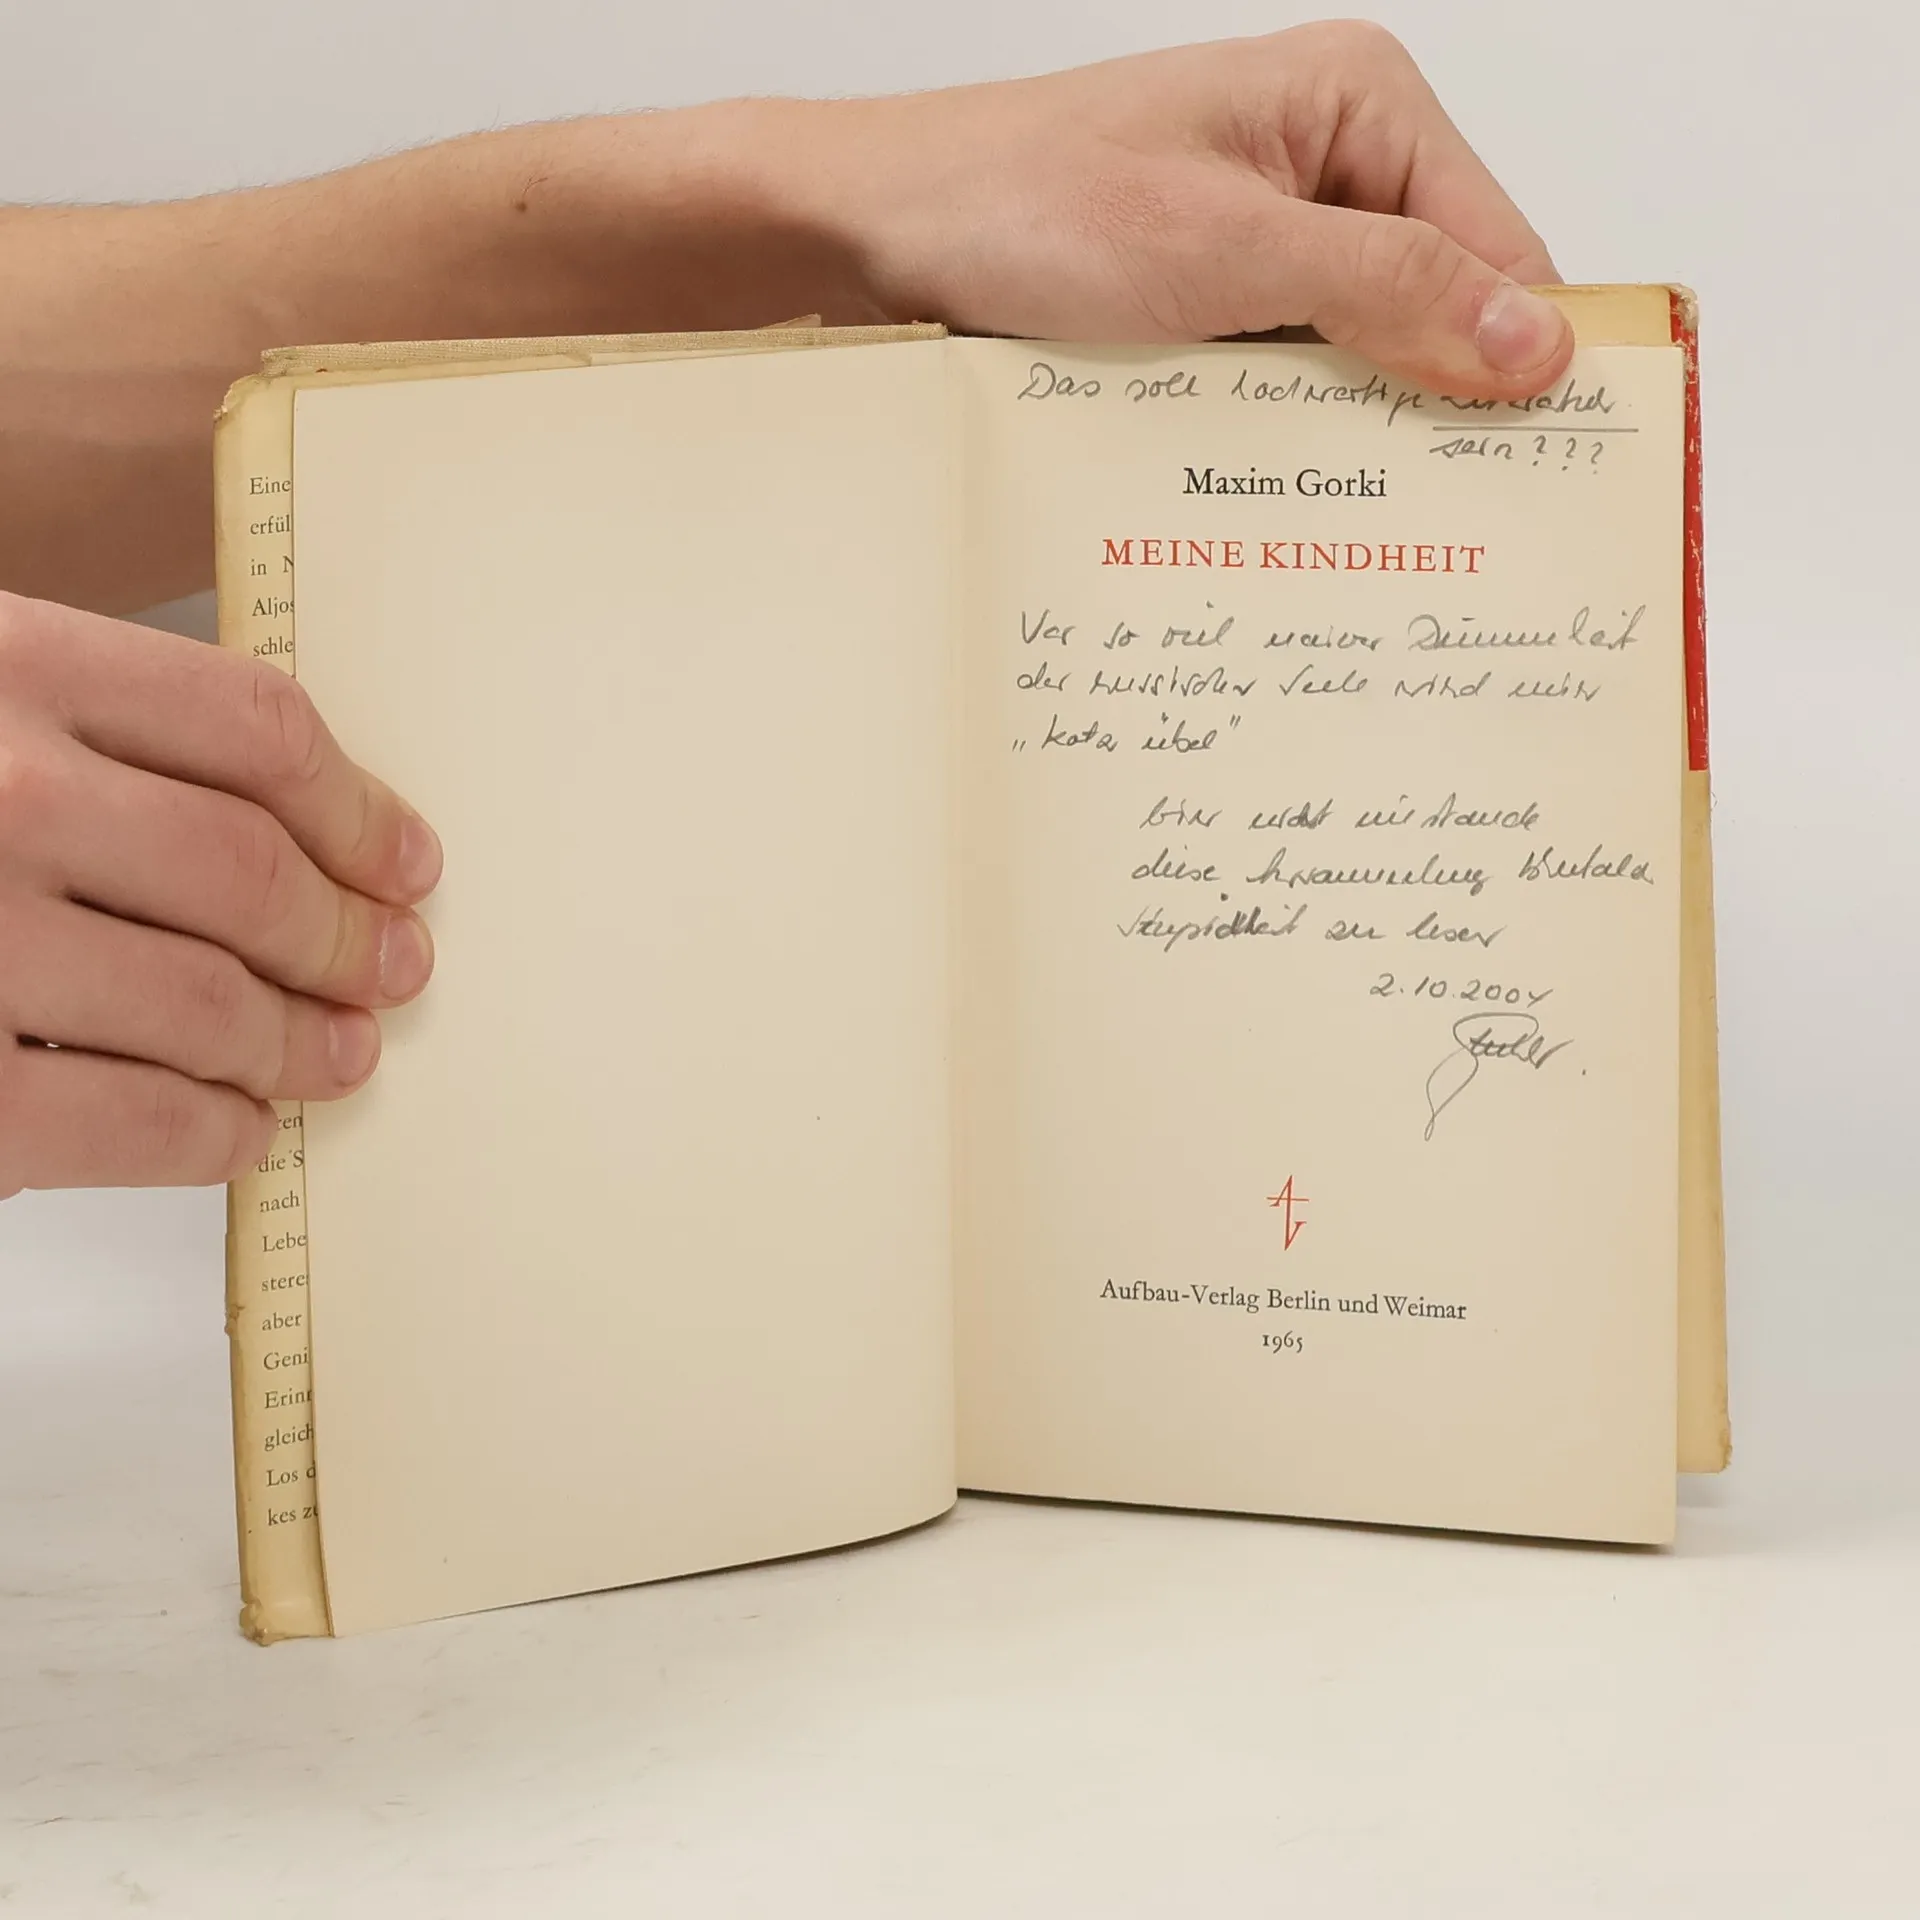 Eine
erfül
in N
Aljos
schle
ren
die S
nach
Lebe
stere
aber
Geni
Erinn
gleich
Los d
kes zu
Das soll hochwertige Literatur
sein???
Maxim Gorki
MEINE KINDHEIT
Vor so viel naiver Dummheit
der russischen Seele wird mir
„Kotz übel"
bin nicht imstande
diese Ansammlung brutaler
Stupidheit zu lesen
2.10.2004
AV
Aufbau-Verlag Berlin und Weimar
1965